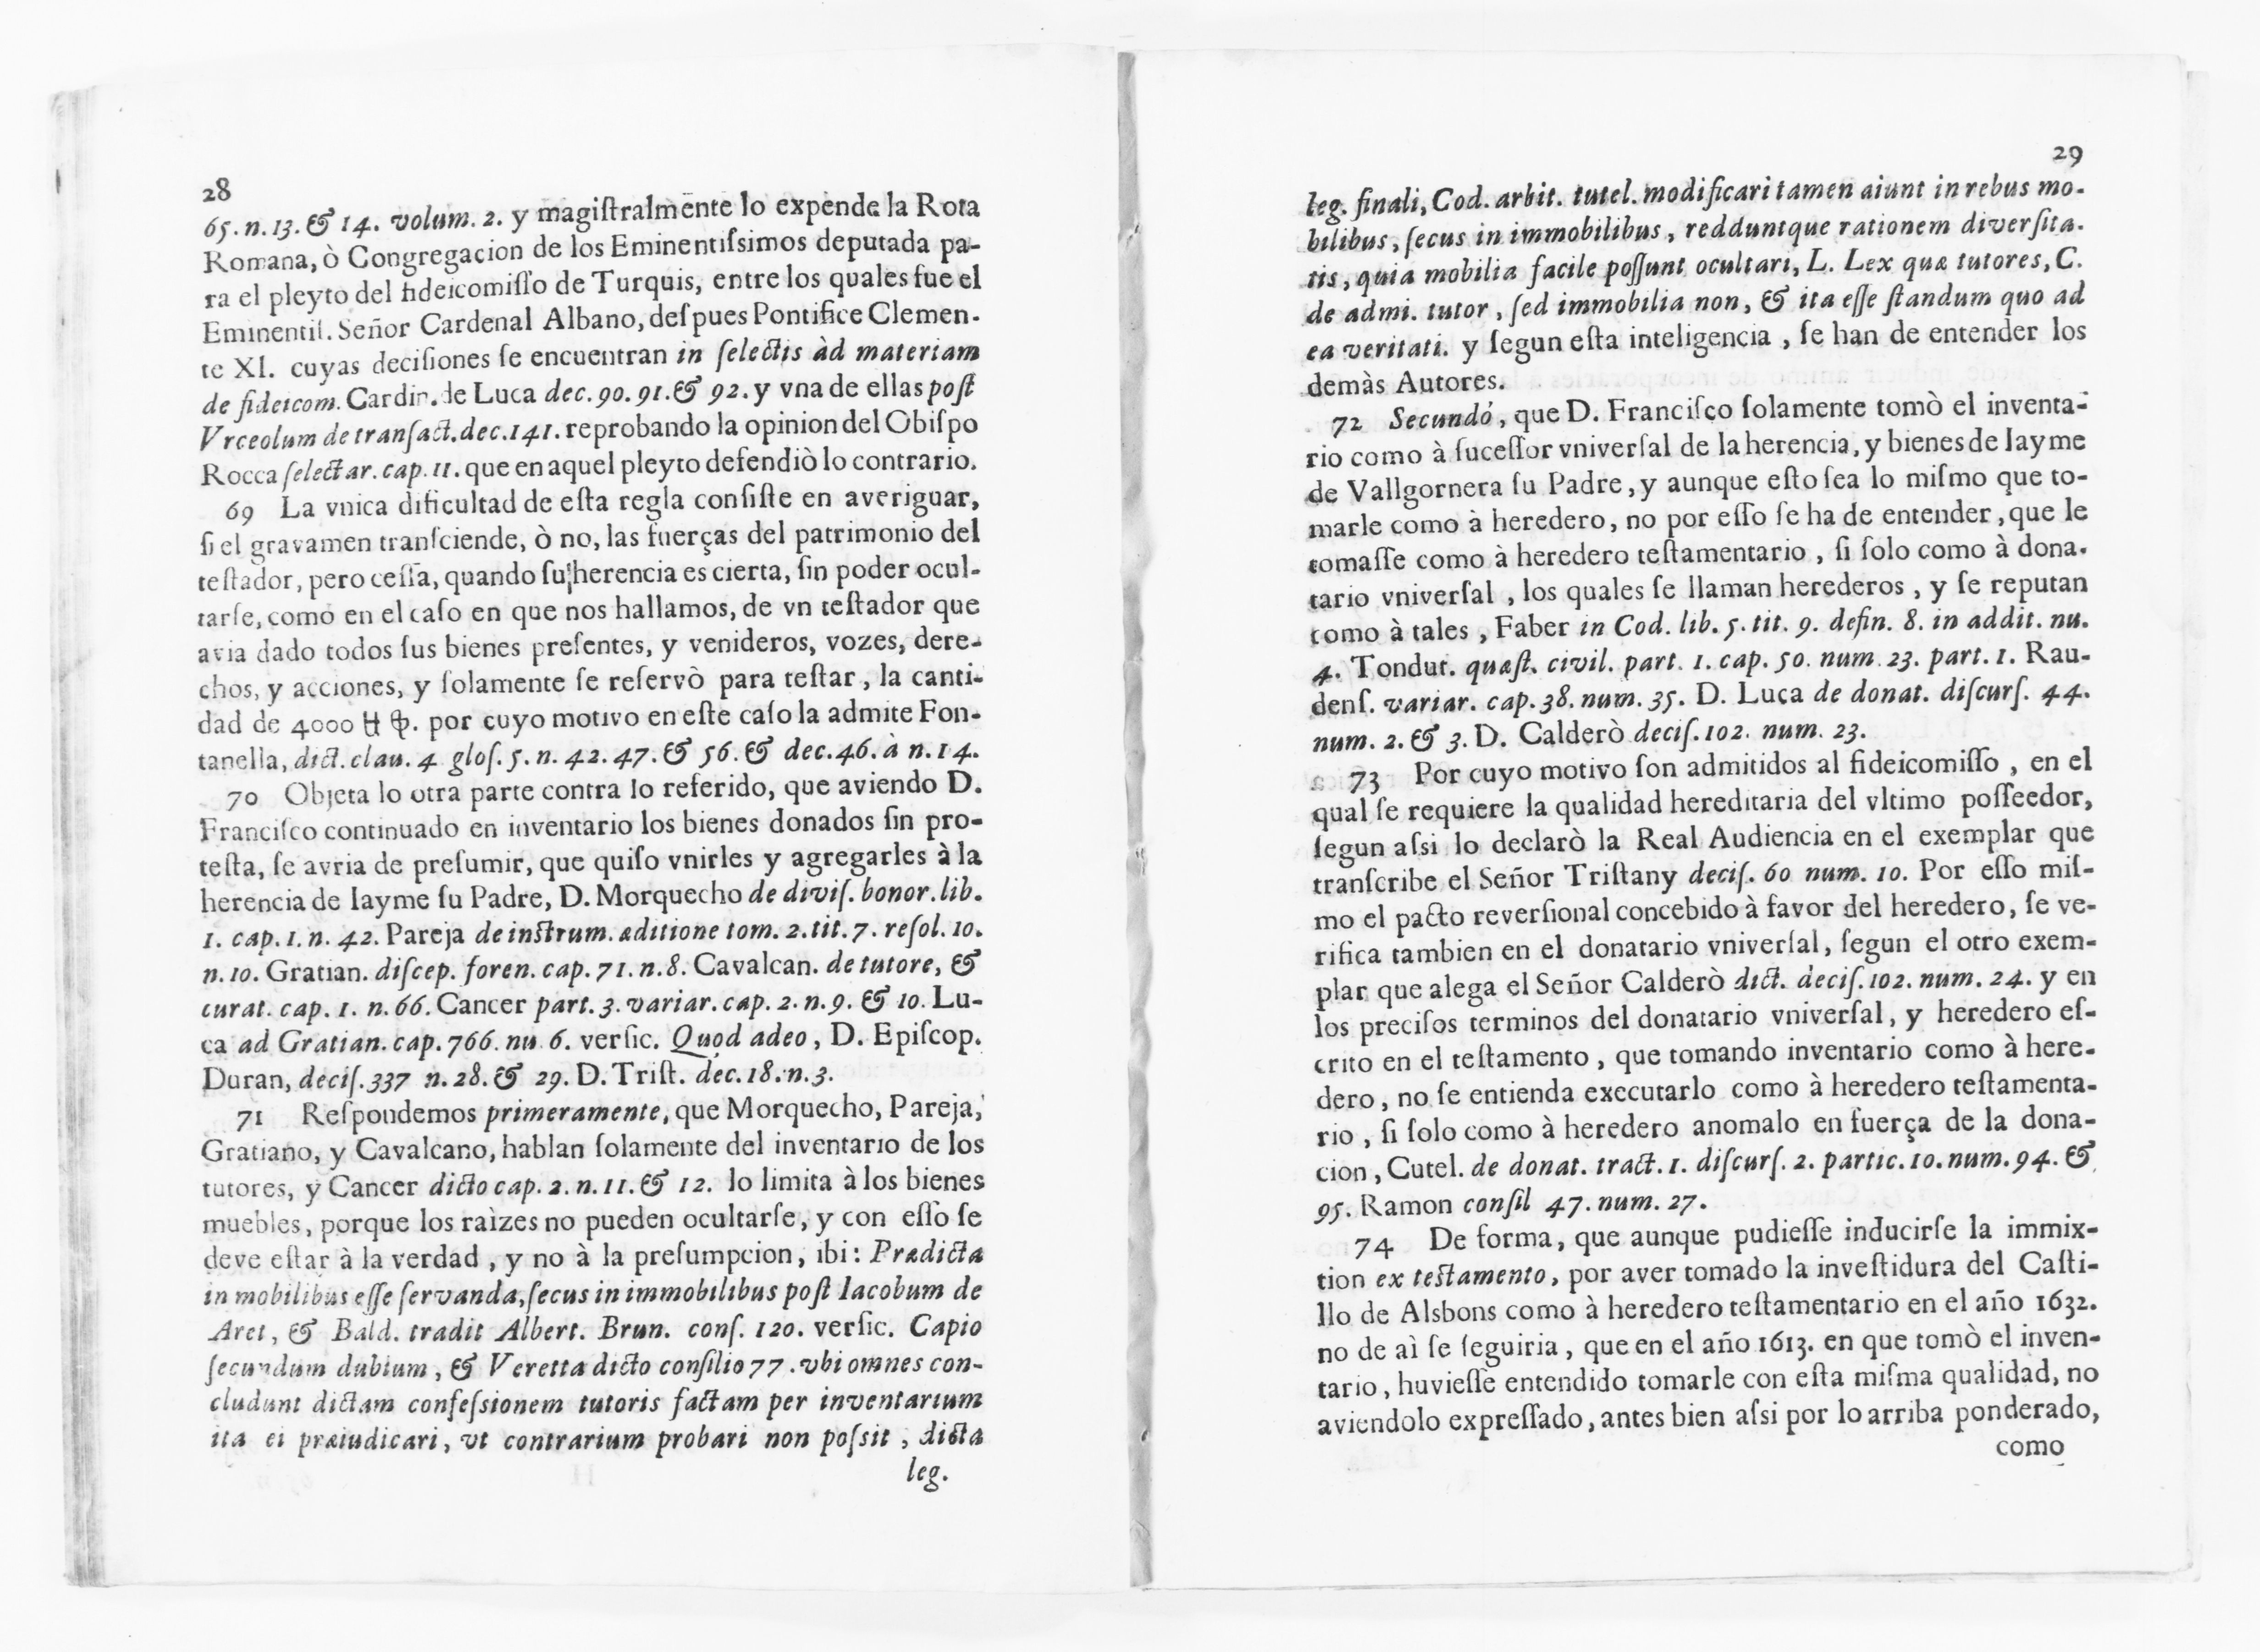 28
65. n. 13. & 14. volum. 2. y magiſtralmēnte lo expende la Rota
Romana, ò Congregacion de los Eminentiſsimos deputada pa-
ra el pleyto del fideicomiſſo de Turquis, entre los quales fue el
Eminentiſ. Señor Cardenal Albano, deſpues Pontifice Clemen-
te XI. cuyas deciſiones ſe encuentran in ſelectis àd materiam
de fideicom. Cardin. de Luca dec. 90. 91. & 92. y vna de ellas poſt
Vrceolum de tranſact. dec. 141. reprobando la opinion del Obiſpo
Rocca ſelectar. cap. 11. que en aquel pleyto defendiò lo contrario.
69 La vnica dificultad de eſta regla conſiſte en averiguar,
ſi el gravamen tranſciende, ò no, las fuerças del patrimonio del
teſtador, pero ceſſa, quando ſu herencia es cierta, ſin poder ocul-
tarſe, como en el caſo en que nos hallamos, de vn teſtador que
avia dado todos ſus bienes preſentes, y venideros, vozes, dere-
chos, y acciones, y ſolamente ſe reſervò para teſtar, la canti-
dad de 4000 por cuyo motivo en eſte caſo la admite Fon-
tanella, dict. clau. 4 gloſ. 5. n. 42. 47. & 56. & dec. 46. à n. 14.
70 Objeta lo otra parte contra lo referido, que aviendo D.
Franciſco continuado en inventario los bienes donados ſin pro-
teſta, ſe avria de preſumir, que quiſo vnirles y agregarles à la
herencia de Iayme ſu Padre, D. Morquecho de diviſ. bonor. lib.
1. cap. 1. n. 42. Pareja de inſtrum. æditione tom. 2. tit. 7. reſol. 10.
n. 10. Gratian. diſcep. foren. cap. 71. n. 8. Cavalcan. de tutore, &
curat. cap. 1. n. 66. Cancer part. 3. variar. cap. 2. n. 9. & 10. Lu-
ca ad Gratian. cap. 766. nu 6. verſic. Quod adeo, D. Epiſcop.
Duran, deciſ. 337 n. 28. & 29. D. Triſt. dec. 18. n. 3.
71 Reſpondemos primeramente, que Morquecho, Pareja,
Gratiano, y Cavalcano, hablan ſolamente del inventario de los
tutores, y Cancer dicto cap. 2. n. 11. & 12. lo limita à los bienes
muebles, porque los raìzes no pueden ocultarſe, y con eſſo ſe
deve eſtar à la verdad, y no à la preſumpcion, ibi: Prædicta
in mobilibus eſſe ſervanda, ſecus in immobilibus poſt Iacobum de
Aret, & Bald. tradit Albert. Brun. conſ. 120. verſic. Capio
ſecundum dubium, & Veretta dicto conſilio 77. vbi omnes con-
cludunt dictam confeſsionem tutoris factam per inventarium
ita ei præiudicari, vt contrarium probari non poſsit, dicta
leg.
29
leg. finali, Cod. arbit. tutel. modificari tamen aiunt in rebus mo-
bilibus, ſecus in immobilibus, redduntque rationem diverſita-
tis, quia mobilia facile poſſunt ocultari, L. Lex quæ tutores, C.
de admi. tutor, ſed immobilia non, & ita eſſe ſtandum quo ad
ea veritati. y ſegun eſta inteligencia, ſe han de entender los
demàs Autores.
72 Secundó, que D. Franciſco ſolamente tomò el inventa-
rio como à ſuceſſor vniverſal de la herencia, y bienes de Iayme
de Vallgornera ſu Padre, y aunque eſto ſea lo miſmo que to-
marle como à heredero, no por eſſo ſe ha de entender, que le
tomaſſe como à heredero teſtamentario, ſi ſolo como à dona-
tario vniverſal, los quales ſe llaman herederos, y ſe reputan
como à tales, Faber in Cod. lib. 5. tit. 9. defin. 8. in addit. nu.
4. Tondut. quæſt. civil. part. 1. cap. 50. num. 23. part. 1. Rau-
denſ. variar. cap. 38. num. 35. D. Luca de donat. diſcurſ. 44.
num. 2. & 3. D. Calderò deciſ. 102. num. 23.
73 Por cuyo motivo ſon admitidos al fideicomiſſo, en el
qual ſe requiere la qualidad hereditaria del vltimo poſſeedor,
ſegun aſsi lo declarò la Real Audiencia en el exemplar que
tranſcribe el Señor Triſtany deciſ. 60 num. 10. Por eſſo miſ-
mo el pacto reverſional concebido à favor del heredero, ſe ve-
rifica tambien en el donatario vniverſal, ſegun el otro exem-
plar que alega el Señor Calderò dict. deciſ. 102. num. 24. y en
los preciſos terminos del donatario vniverſal, y heredero eſ-
crito en el teſtamento, que tomando inventario como à here-
dero, no ſe entienda executarlo como à heredero teſtamenta-
rio, ſi ſolo como à heredero anomalo en fuerça de la dona-
cion, Cutel. de donat. tract. 1. diſcurſ. 2. partic. 10. num. 94. &
95. Ramon conſil 47. num. 27.
74 De forma, que aunque pudieſſe inducirſe la immix-
tion ex teſtamento, por aver tomado la inveſtidura del Caſti-
llo de Alsbons como à heredero teſtamentario en el año 1632.
no de aì ſe ſeguiria, que en el año 1613. en que tomò el inven-
tario, huvieſſe entendido tomarle con eſta miſma qualidad, no
aviendolo expreſſado, antes bien aſsi por lo arriba ponderado,
como